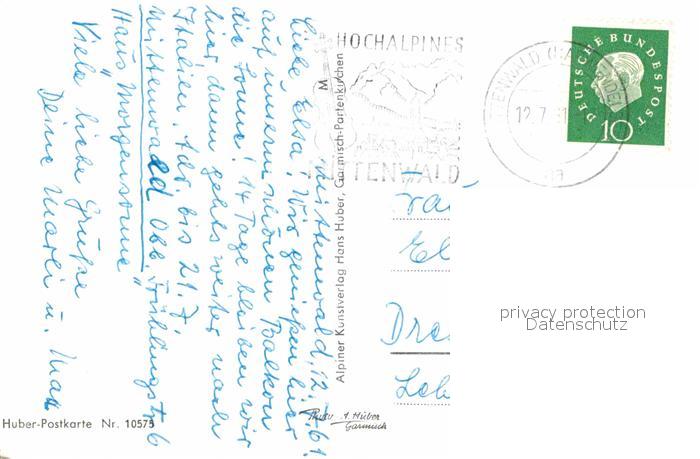 Mittenwald, 12.7.61.
Liebe Elsa! Wir genießen hier
auf unserm schönen Balkon
die Sonne! 14 Tage bleiben wir
hier dann gehts weiter nach
Italien. Adr. bis 21.7.
Mittenwald Obb. Frühlingstr. 6
Haus "Morgensonne"
Viele liebe Grüße
Deine Marli u. Max
HOCHALPINES
M
TTENWALD
TENWALD (
12.7. 1
DEUTSCHE BUNDESPOST
10
Alpiner Kunstverlag Hans Huber, Garmisch-Partenkirchen
rau
El
Dre
Lob
privacy protection
Datenschutz
Huber-Postkarte Nr. 10575
Photo A. Huber
Garmisch